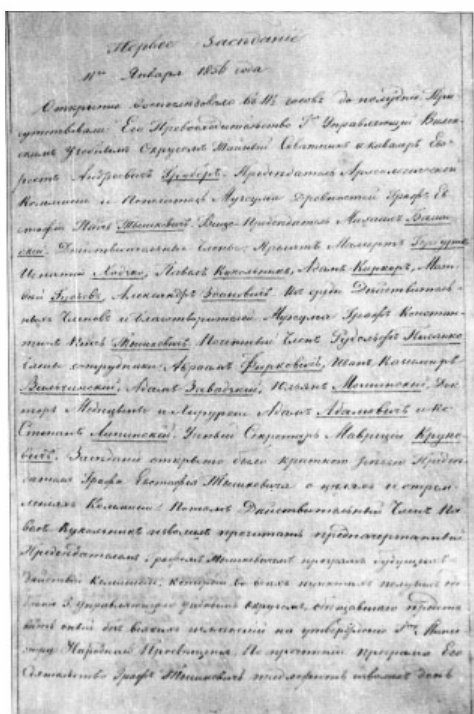 Первое Заседание
11го Января 1856 года
Открытие воспоследовало въ 11½ часовъ до полудни. При-
сутствовали: Его Превосходительство Гнъ Управляющій Вилен-
скимъ Учебнымъ Округомъ Тайный Советникъ и кавалеръ Ев-
Андреевичъ Грубер, Председатель Археологической
Коммисіи и Попечитель Музеума Древностей Графъ Ев-
стафій Тышкевичъ, Вице-Председатель Михаилъ Балин-
скій, Действительные Члены:
Игнатій Ходзко, Павелъ Кукольникъ, Адамъ Киркоръ, Мат-
вей Гусевъ, Александръ Здановичъ. Изъ среды Действитель-
ныхъ Членовъ и благотворителей Музеума Графъ Констан-
тинъ Тышкевичъ, Почетный Членъ Рудольфъ
Члены сотрудники: Авраамъ Фирковичъ, Иванъ Казимиръ
Вильчинскій, Адамъ Завадскій, Юльянъ Мошинскій, Док-
торъ Медицины и Хирургіи Адамъ Адамовичъ и Кс.
Липинскій. Ученый Секретарь Маврицій Крупо-
вичъ. Заседаніе открыто было краткою речью Предсе-
дателя Графа Евстафія Тышкевича о целяхъ и стрем-
леніяхъ Коммисіи. Потомъ Действительный Членъ Па-
велъ Кукольникъ изволилъ прочитать предначертанный
Председателемъ Графомъ Тышкевичемъ програмъ будущихъ
действій Коммисіи, который во всехъ пунктахъ получилъ
Г. Управляющаго учебнымъ округомъ, обещавшаго предста-
вить оный безъ всякихъ на утвержденіе Гна Мини-
стра Народнаго Просвещенія. По прочтеніи програма Его
Сіятельство Графъ Тышкевичъ изволилъ день